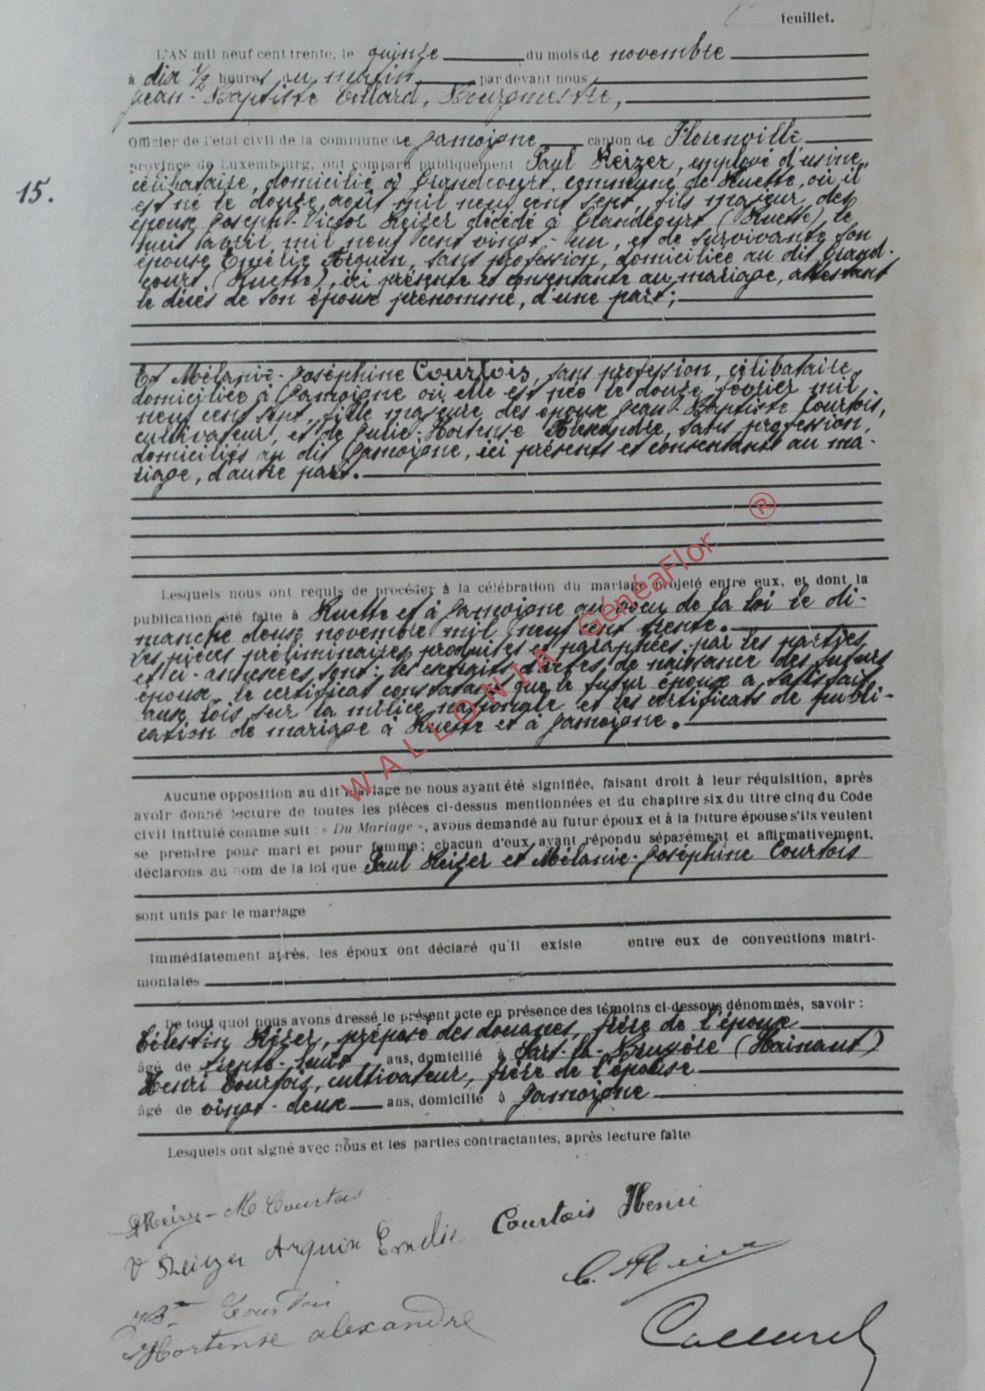 feuillet.
L'AN mil neuf cent trente, le quinze du mois de novembre
à dix ½ heures du matin, par devant nous
Jean-Baptiste Collard, Bourgmestre,
Officier de l'état civil de la commune de Jamoigne canton de Florenville
province de Luxembourg, ont comparu publiquement Paul Reizer, employé d'usine,
15.
célibataire, domicilié à Grandcourt, commune de Ruette, où il
est né le douze août mil neuf cent sept, fils majeur des
époux Joseph-Victor Reizer décédé à Grandcourt (Ruette), le
huit avril mil neuf cent vingt-un, et de survivante son
épouse Emélie Arquin, sans profession, domiciliée au dit Grand-
court (Ruette), ici présente et consentante au mariage, attestant
le décès de son époux prénommé, d'une part;
Et Mélanie-Joséphine Courtois, sans profession, célibataire,
domiciliée à Jamoigne où elle est née le douze février mil
neuf cent sept, fille majeure des époux Jean-Baptiste Courtois,
cultivateur, et de Julie-Hortense Alexandre, sans profession,
domiciliés au dit Jamoigne, ici présents et consentants au ma-
riage, d'autre part.
Lesquels nous ont requis de procéder à la célébration du mariage projeté entre eux, et dont la
publication été faite à Ruette et à Jamoigne au vœu de la loi le di-
manche deux novembre mil neuf cent trente.
Les pièces préliminaires produites et paraphées par les parties
et ci-annexées sont: les extraits d'actes de naissance des futurs
époux, le certificat constatant que le futur époux a satisfait
aux lois sur la milice nationale et les certificats de publi-
cation de mariage à Ruette et à Jamoigne.
WALLONIA GénéaFlor ®
Aucune opposition au dit mariage ne nous ayant été signifiée, faisant droit à leur réquisition, après
avoir donné lecture de toutes les pièces ci-dessus mentionnées et du chapitre six du titre cinq du Code
civil intitulé comme suit : « Du Mariage », avons demandé au futur époux et à la future épouse s'ils veulent
se prendre pour mari et pour femme ; chacun d'eux ayant répondu séparément et affirmativement,
déclarons au nom de la loi que Paul Reizer et Mélanie-Joséphine Courtois
sont unis par le mariage
Immédiatement après, les époux ont déclaré qu'il existe entre eux de conventions matri-
moniales
De tout quoi nous avons dressé le présent acte en présence des témoins ci-dessous dénommés, savoir :
Célestin Reizer, préposé des douanes, frère de l'époux
âgé de trente-huit ans, domicilié à Sart-la-Bruyère (Hainaut)
Henri Courtois, cultivateur, frère de l'épouse
âgé de vingt-deux ans, domicilié à Jamoigne
Lesquels ont signé avec nous et les parties contractantes, après lecture faite
P Reizer - M. Courtois
V Reizer Arquin Emélie Courtois Henri
C. Reizer
JBte Courtois
Hortense alexandre
Collard